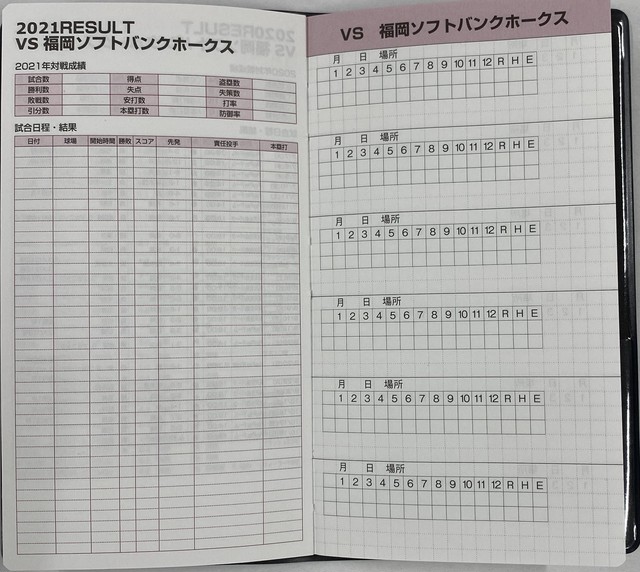 2021RESULT
VS 福岡ソフトバンクホークス
2021年対戦成績
試合数 得点 盗塁数
勝利数 失点 失策数
敗戦数 安打数 打率
引分数 本塁打数 防御率
試合日程・結果
日付 球場 開始時間 勝敗 スコア 先発 責任投手 本塁打
VS 福岡ソフトバンクホークス
月 日 場所
1 2 3 4 5 6 7 8 9 10 11 12 R H E
月 日 場所
1 2 3 4 5 6 7 8 9 10 11 12 R H E
月 日 場所
1 2 3 4 5 6 7 8 9 10 11 12 R H E
月 日 場所
1 2 3 4 5 6 7 8 9 10 11 12 R H E
月 日 場所
1 2 3 4 5 6 7 8 9 10 11 12 R H E
月 日 場所
1 2 3 4 5 6 7 8 9 10 11 12 R H E